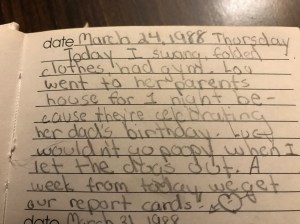 date March 24, 1988 Thursday
Today I swang, folded
clothes, had gym. Lou
went to her parents
house for 1 night be-
cause they're celebrating
her dad's birthday.
wouldn't go poopy when I
let the dogs out. A
week from today we get
our report cards.
date March 31, 1988